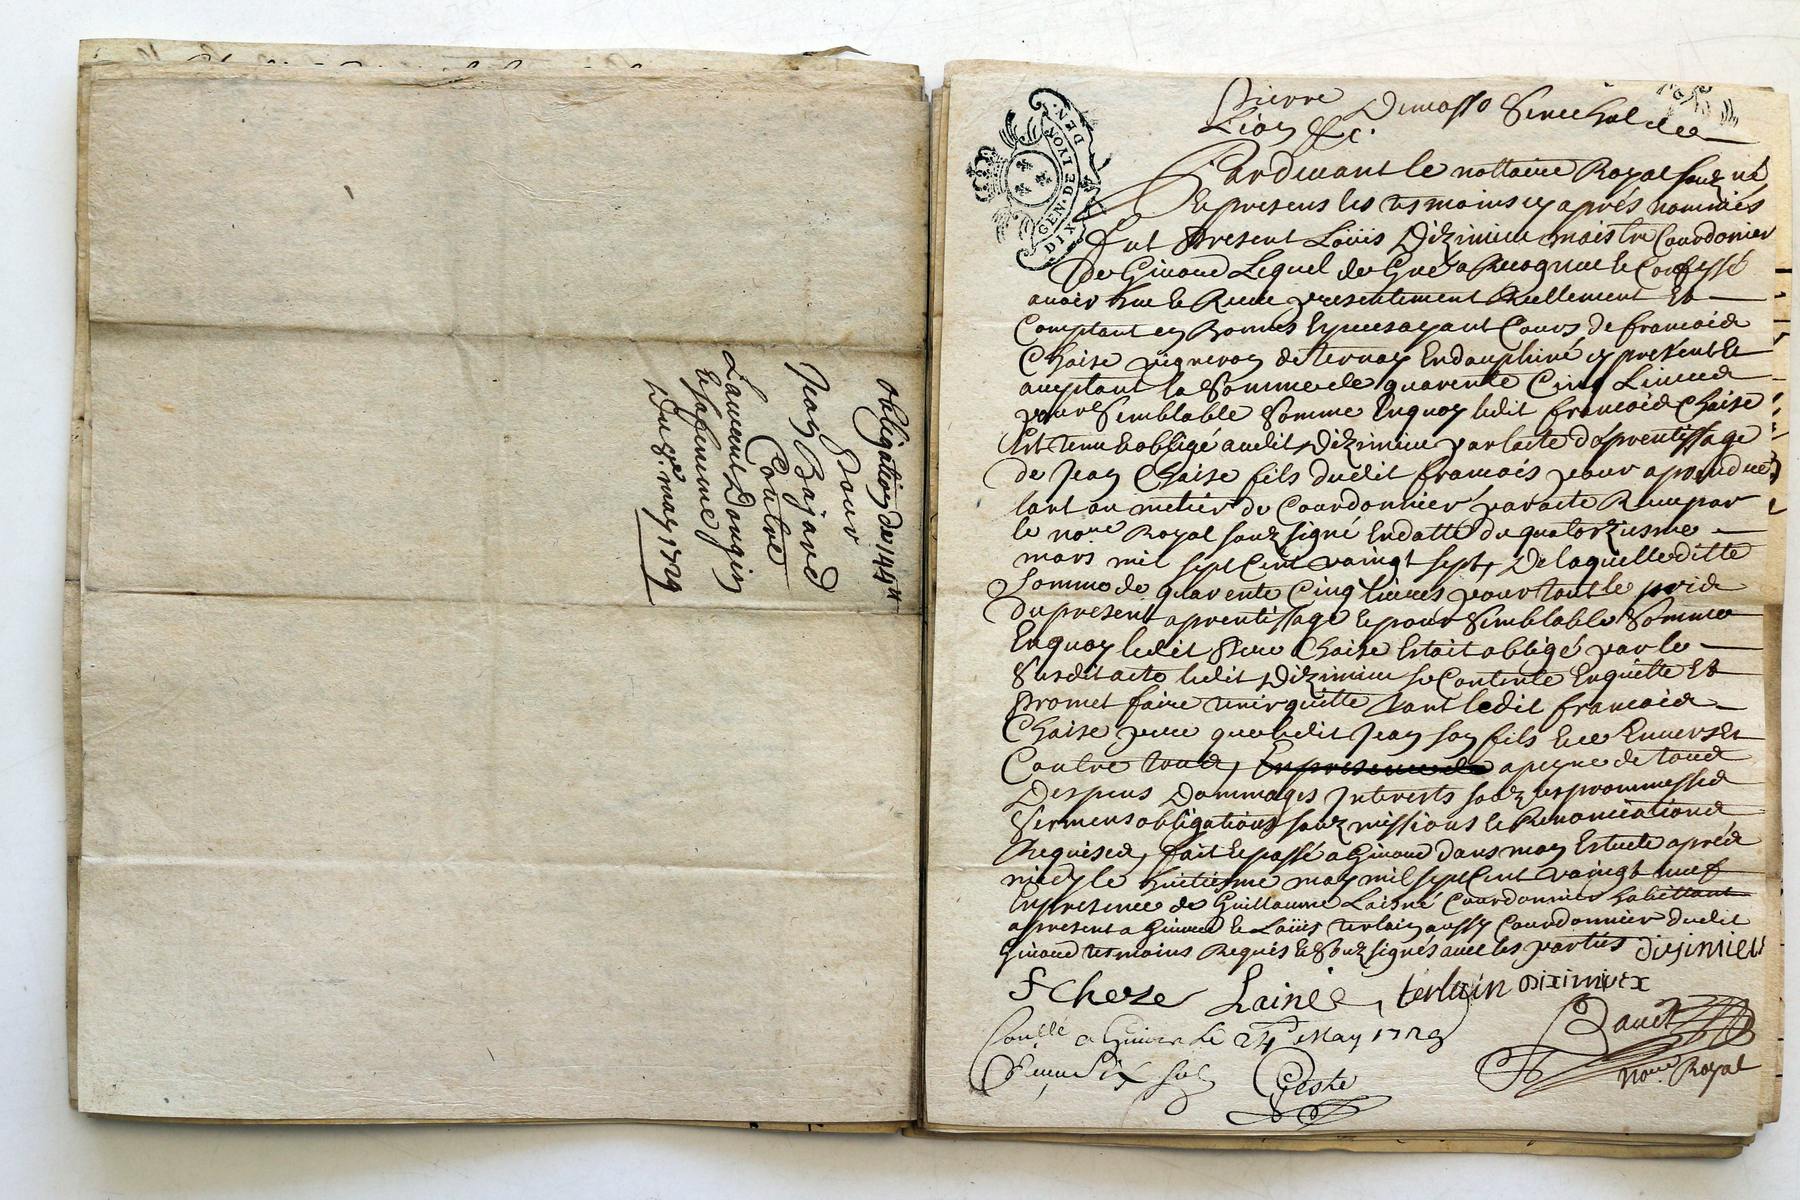 obligation de 144ᵗᵗ
Pour
Jean Bajard
Contre
Laurent Dongin
et sa femme
Du 9ᵉ. may 1729
GEN. DE LYON
DIX DEN.
Pierre Dumasso Senechal de
Lion &c.
Pardevant le nottaire Royal souz né
Et presens les tesmoins cy aprés nommés
fut Present Loüis Dizimieu maistre Courdonier
de Givord Lequel de Gré a Recognu et Confessé
avoir heu et Receu presentement Reellement Et
Comptant en Bonnes Especes ayant Cours de francois
Chaise vigneron de ternay En dauphiné cy present et
aceptant la Somme de quarente Cinq Livres
pour Semblable Somme Enquoy ledit francois Chaise
Est tenu et obligé audit Dizimieu par lacte d'aprentissage
de Jean Chaise fils dudit francois pour aprendre
lart ou metier de Courdonnier par acte Receu par
le noʳᵉ Royal souz signé En datte du quatorziesme
mars mil sept Cent vaingt sept, De laquelle ditte
Somme de quarente Cinq livres pour tout le prix
du present aprentissage et pour Semblable Somme
Enquoy ledit Sieur Chaise Estait obligé par le
Susdit acte ledit Dizimieu se Contente En quitte Et
Promet faire tenir quitte tant ledit francois
Chaise pere que ledit Jean son fils Envers Et
Contre tous, En presence de a peyne de tous
Despens Dommages Interests souz les prommesses
Sermens obligations souzmissions et Renonciations
Requises, fait et passé a Givord dans mon Estude aprés
midy le huitiesme may mil sept Cent vaingt neuf
En presence de Guillaume Laisné Courdonnier habittant
a present a Givord et Loüis terlain aussy Courdonnier dudit
Givord tesmoins Requis et Souz signés avec les parties disimieu
F Cheze Lainé, terlain DiXimieX
Conllé a Givors le 24 May 1729
Receu Six sols Geste
noʳᵉ Royal